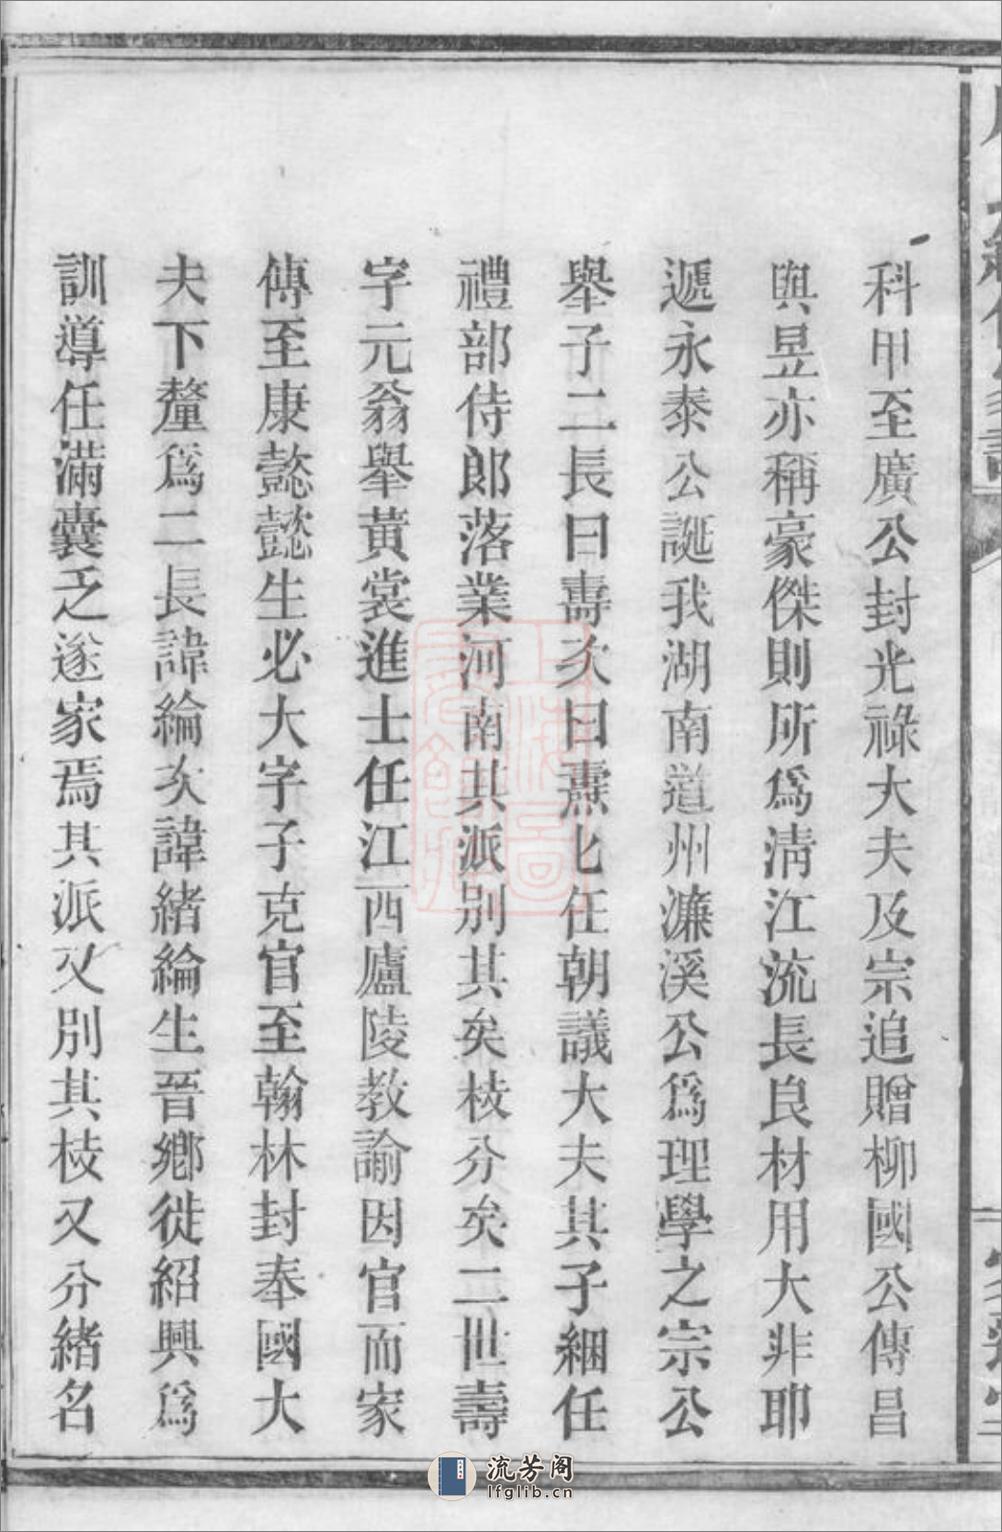 科甲至廣公封光祿大夫及宗追贈柳國公傳昌
與昱亦稱豪傑則所爲淸江流長良材用大非耶
遞永泰公誕我湖南道州濂溪公爲理學之宗公
舉子二長曰壽次曰燾七任朝議大夫其子絪任
禮部侍郎落業河南其派別其矣枝分矣二世壽
字元翁舉黃裳進士任江西廬陵教諭因官而家
傳至康懿懿生必大字子克官至翰林封奉國大
夫下釐爲二長諱綸次諱緒綸生晉鄉徙紹興爲
訓導任滿囊乏遂家焉其派又別其枝又分緒名
流芳阁
lfglib.cn